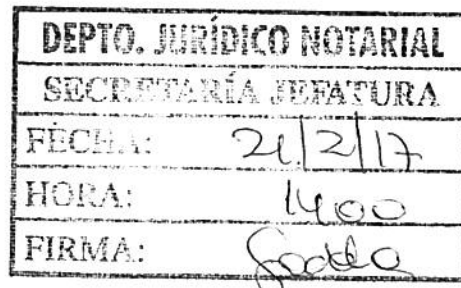 DEPTO. JURÍDICO NOTARIAL
SECRETARÍA JEFATURA
FECHA: 21/2/17
HORA: 1400
FIRMA: